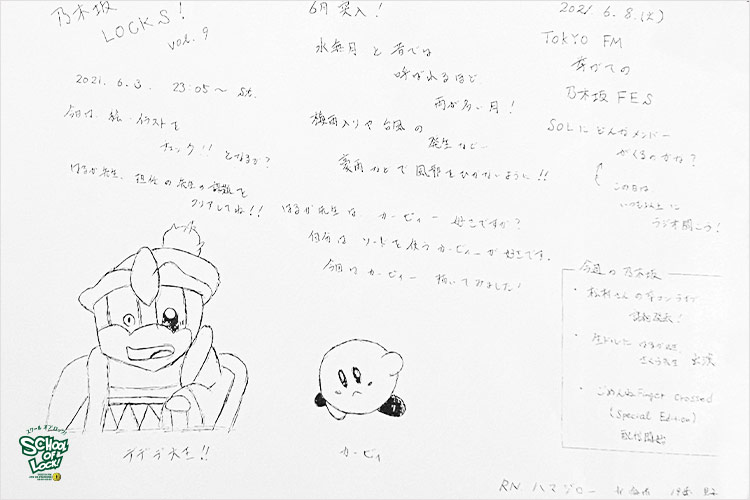 乃木坂
LOCKS!
vol. 9
2021. 6. 3. 23:05〜 St.
今日は 絵・イラストを
チェック!! となるか?
はるか先生、担任の先生の 課題を
クリアしてね!!
6月突入!
水無月 と 昔では
呼ばれるほど
雨が多い月!
梅雨入りや 台風の
発生など…
などで 風邪をひかないように!!
はるか先生は カービィー 好きですか?
ソードを使う カービィーが好きです。
今回は カービィー 描いてみました!
2021. 6. 8. (火)
TOKYO FM
乃木坂 FES
SOLに どんなメンバー
がくるのかな?
この日は
いつも以上に
ラジオ聞こう!
今週の乃木坂
・松村さんの
発表!
・はるか先生
さくら先生 出演
・ごめんねFinger Crossed
(Special Edition)
配信開始
デデデ大王!!
カービィ
スクール オブ ロック!
SCHOOL OF LOCK!
RN. ハマジロー